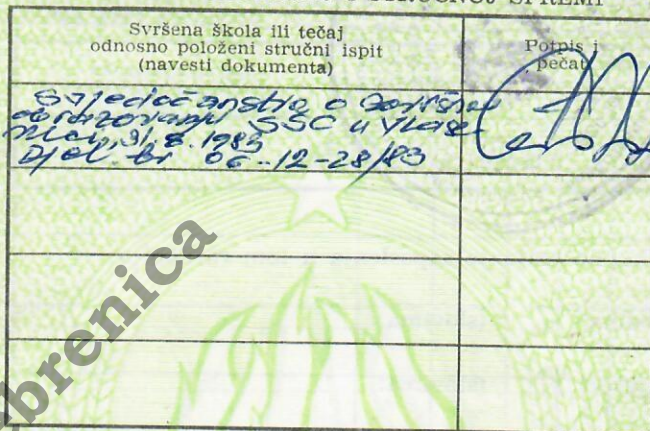 STRUČNOJ SPREMI
Svršena škola ili tečaj
odnosno položeni stručni ispit
(navesti dokumenta)
Potpis i
pečat
Svjedočanstvo o završnom
obrazovanju SSC u Vlase-
nici, 31.8.1983
Djel. br 06-12-28/83
brenica